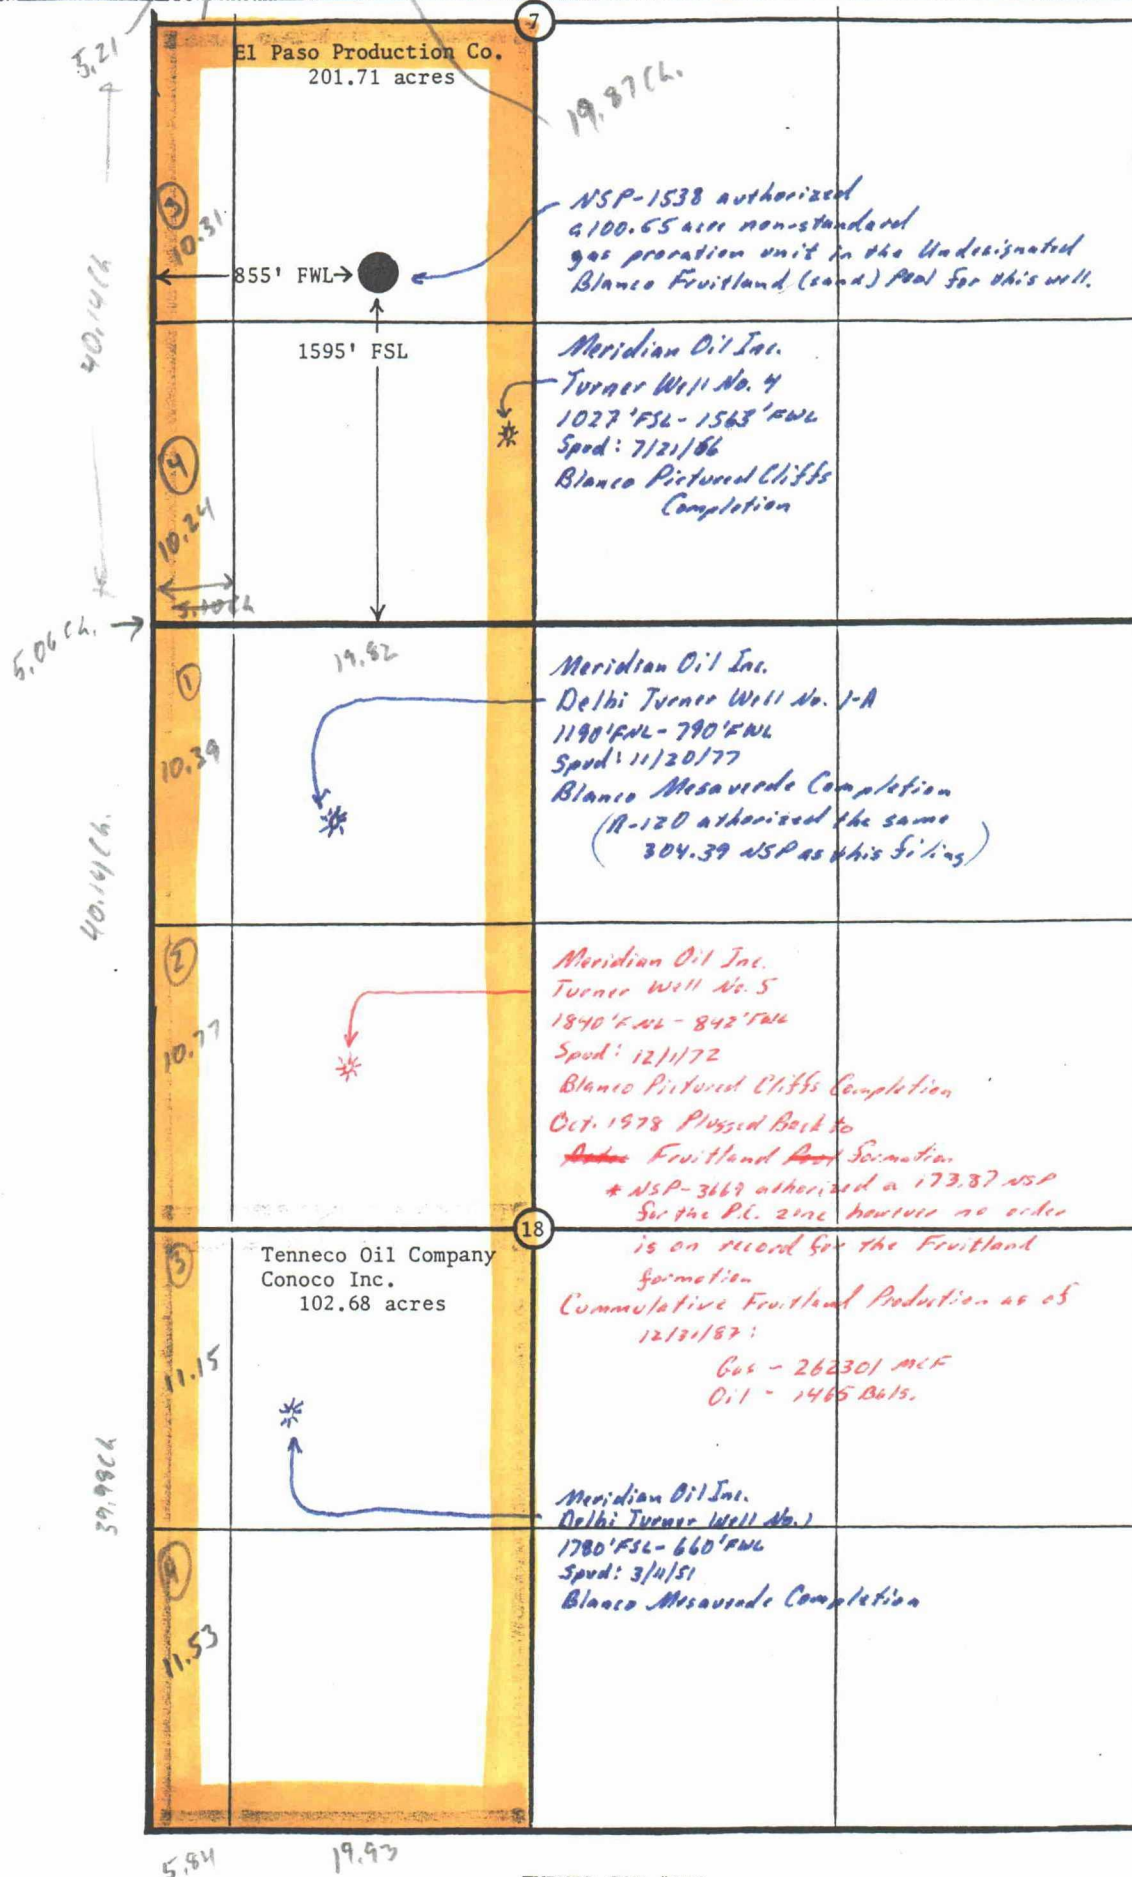 7
El Paso Production Co.
201.71 acres
5.21
19.87 Ch.
40.14 Ch
3
10.31
855' FWL
NSP-1538 authorized
a 100.65 acre non-standard
gas proration unit in the Undesignated
Blanco Fruitland (sand) Pool for this well.
1595' FSL
Meridian Oil Inc.
Turner Well No. 4
1027 'FSL - 1563 'FWL
Spud: 7/21/66
Blanco Pictured Cliffs
Completion
4
10.24
5.10 Ch
5.06 Ch.
19.82
Meridian Oil Inc.
Delhi Turner Well No. 1-A
1190'FNL - 790'FWL
Spud: 11/20/77
Blanco Mesaverde Completion
(R-120 athorized the same
304.39 NSP as this filing)
1
10.39
40.14 Ch.
2
10.77
Meridian Oil Inc.
Turner Well No. 5
1840'FNL - 842'FWL
Spud: 12/1/72
Blanco Pictured Cliffs Completion
Oct. 1978 Plugged Back to
Fruitland Pool formation
* NSP-3669 athorized a 173.87 NSP
for the P.C. zone however no order
is on record for the Fruitland
formation
Cummulative Fruitland Production as of
12/31/87:
Gas - 262301 MCF
Oil - 1465 Bbls.
18
Tenneco Oil Company
Conoco Inc.
102.68 acres
3
11.15
39.98 Ch
Meridian Oil Inc.
Delhi Turner Well No. 1
1780'FSL - 660'FWL
Spud: 3/4/51
Blanco Mesaverde Completion
4
11.53
5.84
19.93